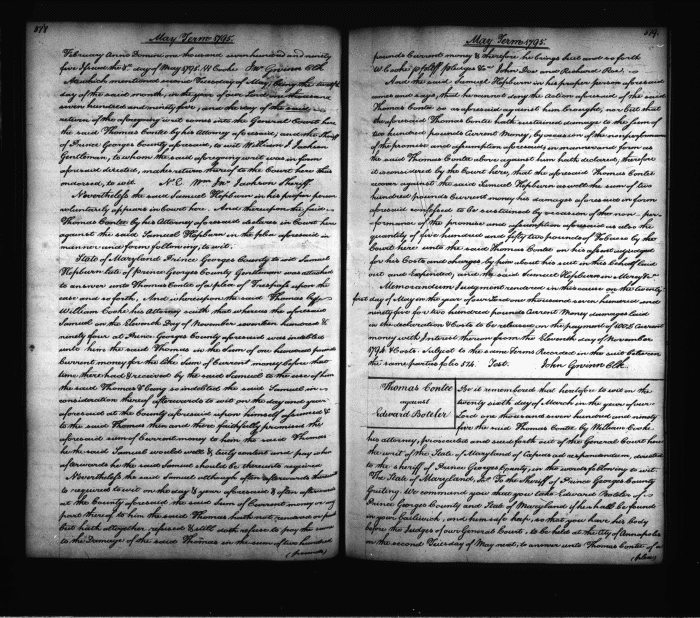 578
May Term 1795.
February Anno Domini one thousand seven hundred and ninety
five Issued the 3d. day of May 1795. W Cooke Jno Gwinn Clk
At which mentioned second Tuesday of May, being the twelfth
day of the said month, in the year of our Lord one thousand
seven hundred and ninety five, and the day of the said
return of the aforegoing writ comes into the General Court here
the said Thomas Contee by his Attorney aforesaid, and the Sheriff
of Prince Georges County aforesaid, to wit William J Jackson
Gentleman, to whom the said aforegoing writ was in form
aforesaid directed, makes return thereof to the Court here thus
endorsed, to wit N. E. Wm Jno Jackson Sheriff.
Nevertheless the said Samuel Hepburn in his proper person
voluntarily appears in Court here. And thereupon the said
Thomas Contee by his Attorney aforesaid declares in Court here
against the said Samuel Hepburn in the plea aforesaid in
manner and form following, to wit.
State of Maryland Prince Georges County to wit Samuel
Hepburn late of prince Georges County Gentleman was attached
to answer unto Thomas Contee of a plea of Trespass upon the
case and so forth, And whereupon the said Thomas by
William Cooke his Attorney saith that whereas the aforesaid
Samuel on the Eleventh Day of November seventeen hundred &
ninety four at Prince Georges County aforesaid was indebted
unto him the said Thomas in the Sum of one hundred pounds
Current money for the like Sum of Current money before that
time there had & received by the said Samuel to the use of him
the said Thomas & being so indebted the said Samuel in
consideration thereof afterwards to wit on the day and year
aforesaid at the County aforesaid upon himself assumed &
to the said Thomas then and there faithfully promised the
aforesaid sum of Current money to him the said Thomas
he the said Samuel would well & truly content and pay when
afterwards he the said Samuel should be thereunto required
Nevertheless the said Samuel although often afterwards thereunto
to required to wit on the day & year aforesaid & often afterwards
at the County aforesaid the said Sum of Current money or any
part thereof to him the said Thomas hath not rendered or paid
but hath altogether refused & still doth refuse to pay the same
to the Damage of the said Thomas in the sum of two hundred
(pounds)
579.
May Term 1795.
pounds Current money & therefore he brings suit and so forth
W Cooke p plff pledges &c John Doe and Richard Roe.
And the said Samuel Hepburn in his proper person aforesaid
comes and says, that he cannot gainsay the action aforesaid of the said
Thomas Contee so as aforesaid against him brought, nor but that
the aforesaid Thomas Contee hath sustained damage to the sum of
two hundred pounds Current Money, by occasion of the nonperformance
of the promise and assumption aforesaid in manner and form as
the said Thomas Contee above against him hath declared, therefore
it is considered by the Court here, that the aforesaid Thomas Contee
recover against the said Samuel Hepburn as well the sum of two
hundred pounds current money his damages aforesaid in form
aforesaid confessed to be sustained by occasion of the non per-
formance of the promise and assumption aforesaid as also the
quantity of five hundred and fifty two pounds of Tobacco by the
Court here unto the said Thomas Contee on his assent adjudged
for his Costs and charges by him about his suit in this behalf laid
out and expended, and the said Samuel Hepburn in Mercy &c
Memorandum Judgment rendered in this cause on the twenty
first day of May in the year of our Lord one thousand seven hundred and
ninety five for two hundred pounds Current Money damages laid
in the declaration & Costs to be released on the payment of Current
money with Interest thereon from the Eleventh day of November
1794 & Costs. Subject to the same Terms Recorded in the suit between
the same parties folio 574. Test. John Gwinn Clk.
Thomas Contee
against
Edward Boteler
Be it remembered that heretofore to wit on the
twenty sixth day of March in the year of our
Lord one thousand seven hundred and ninety
five the said Thomas Contee by William Cooke
his attorney, prosecuted and sued forth out of the General Court here
the writ of the State of Maryland of Capias ad respondendum, directed
to the sheriff of Prince Georges County, in the words following to wit.
The State of Maryland, sc. To the Sheriff of Prince Georges County
Greeting. We command you that you take Edward Boteler of
Prince Georges County and State of Maryland if he shall be found in
your Bailiwick, and him safe keep, so that you have his body
before the Judges of our General Court, to be held at the City of Annapolis
on the second Tuesday of May next, to answer unto Thomas Contee of a
(plea)